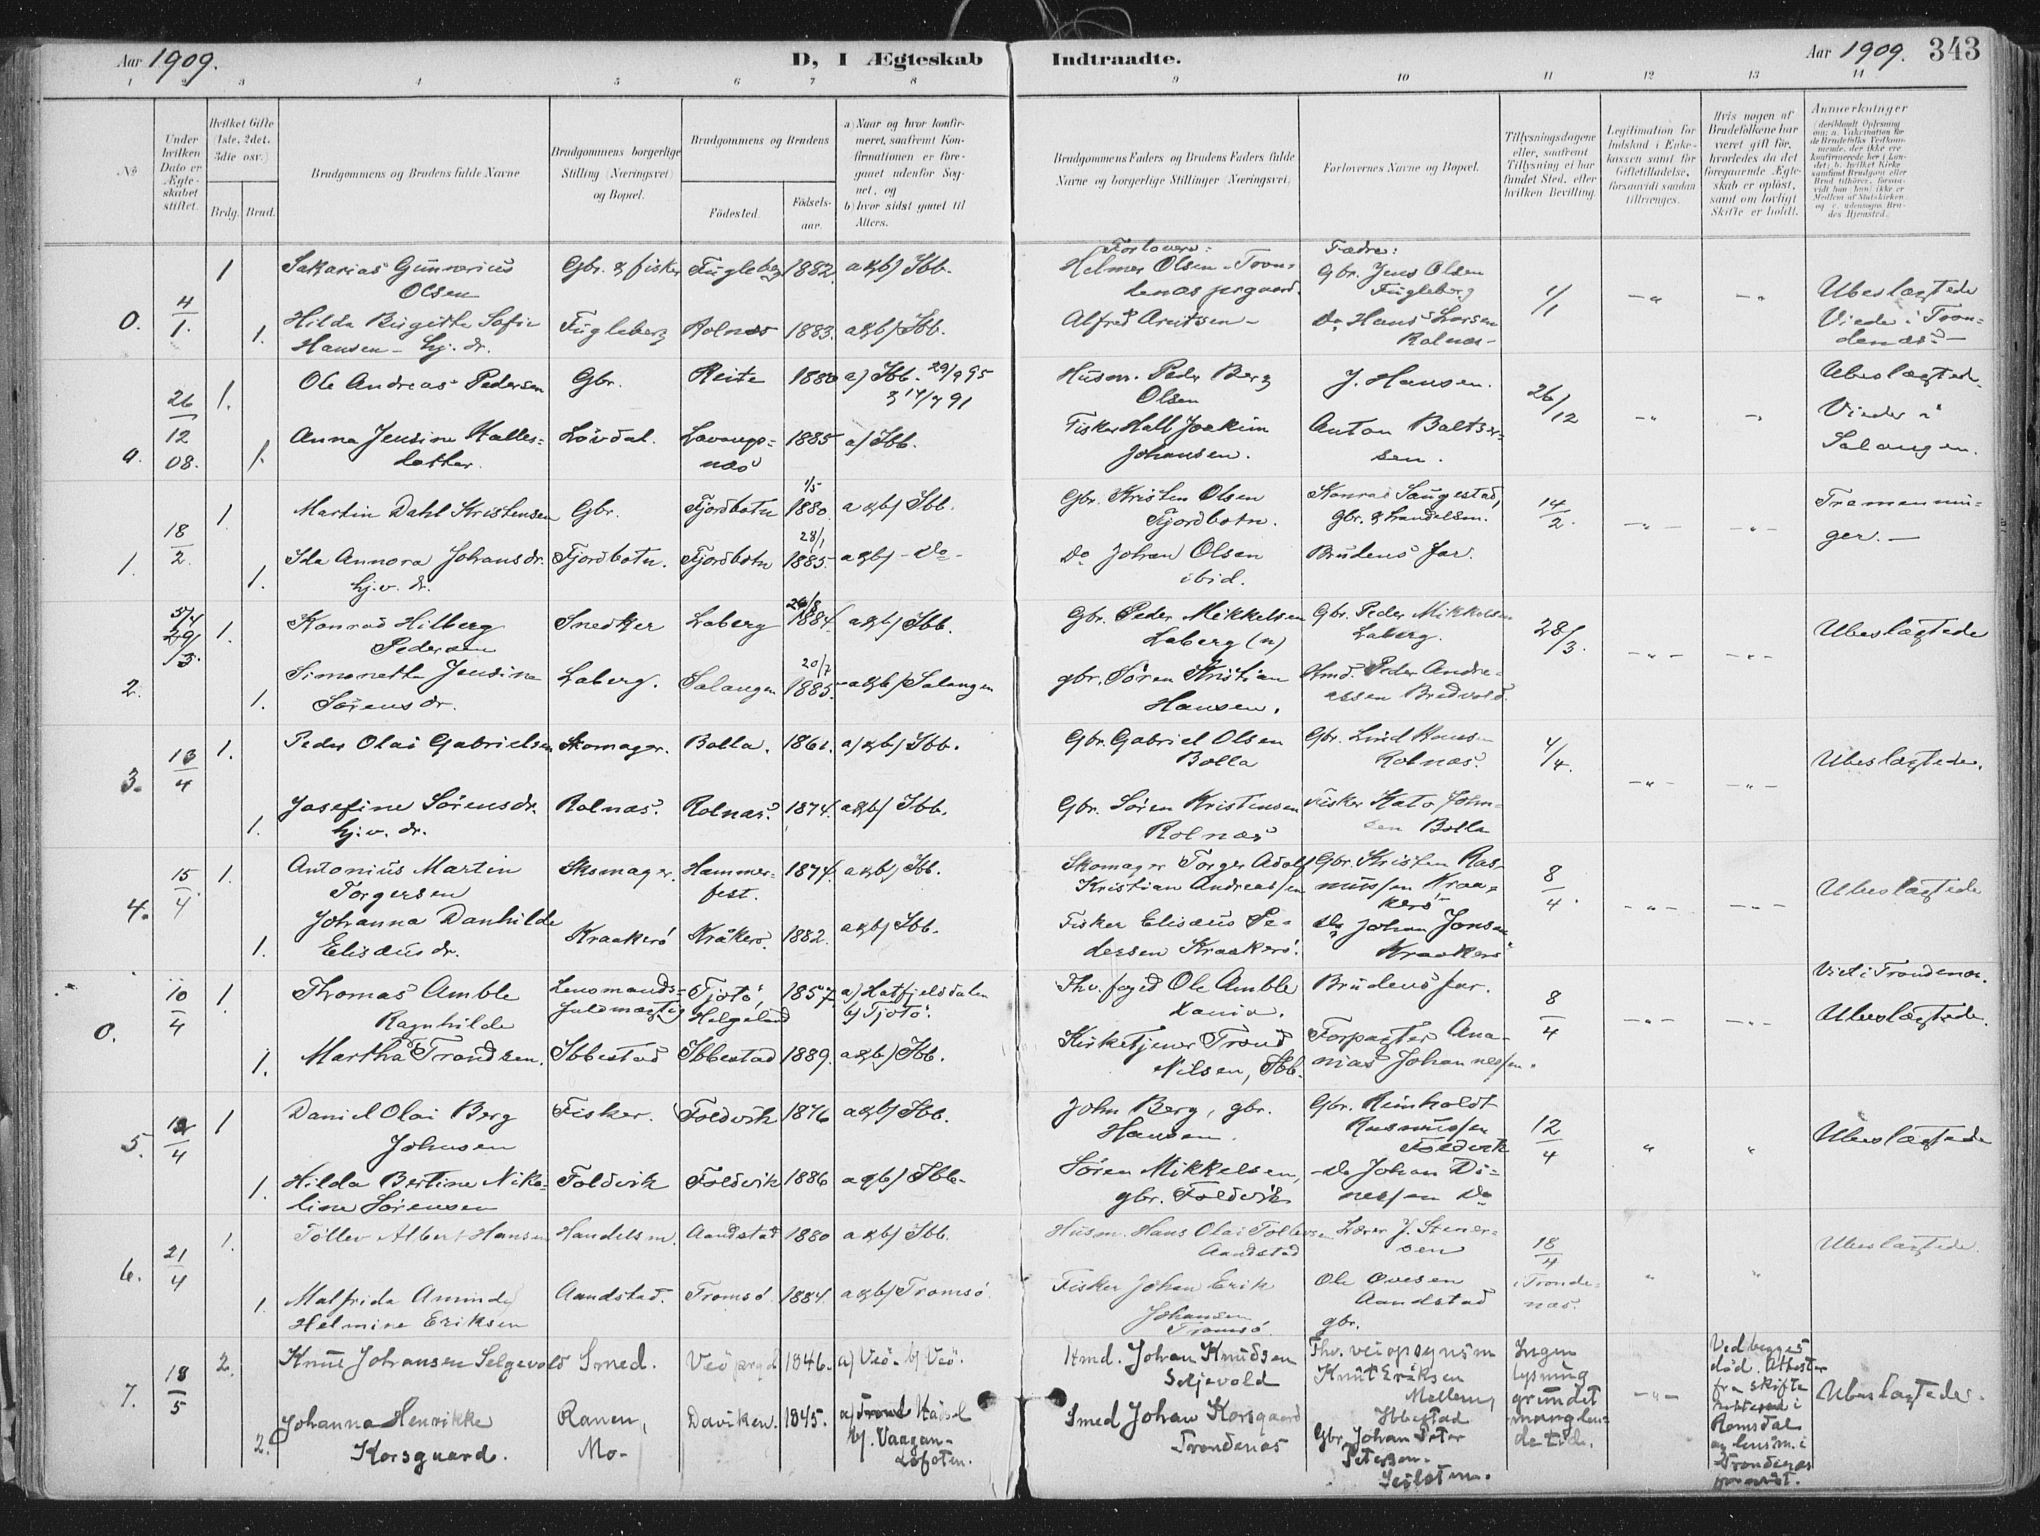 Aar 1909.
D, I Ægteskab
Indtraadte.
Aar 1909.
343
1 3 4 5 6 7 8 9 10 11 12 13 14
No
Under hvilken Dato er Ægteskabet stiftet.
Hvilket Gifte (1ste, 2det, 3die osv.)
Brdg. Brud.
Brudgommens og Brudens fulde Navne
Brudgommens borgerlige Stilling (Næringsvei) og Bopæl.
Brudgommens og Brudens
Fødested.
Fødselsaar.
a) Naar og hvor konfirmeret, saafremt Konfirmationen er foregaaet udenfor Sognet, og
b) hvor sidst gaaet til Alters.
Brudgommens Faders og Brudens Faders fulde Navne og borgerlige Stillinger (Næringsvei)
Forlovernes Navne og Bopæl.
Tillysningsdagene eller, saafremt Tillysning ei har fundet Sted, efter hvilken Bevilling.
Legitimation for Indskud i Enkekassen samt for Giftetilladelse, forsaavidt saadan tiltrænges.
Hvis nogen af Brudefolkene har været gift før, hvorledes da det foregaaende Ægteskab er opløst, samt om lovligt Skifte er holdt.
Anmærkninger
0. 4/1. 1 Sakarias Gunnerius Olsen Gbr. & fisker Fugleberg 1882. a&b) Ibb.
Forlovere: Helmer Olsen Trondenas prgaard. Fædre: Gbr. Jens Olsen Fugleberg 1/1 -"- -"- Ubeslægtede
1. Hilda Birgitte Sofie Hansen - hj. dr. Fugleberg Rolnæs 1883. a&b) Ibb.
Alfred Arntsen - Do Hans Larsen Rolnæs - Viede i Trondenæs. -
0. 26/12 08. 1. Ole Andreas Pedersen Gbr. Reite 1880 a) Ibb. 29/9 95
Husm. Peder Berg Olsen J. Hansen. 26/12 -"- Ubeslægted.
1. Anna Jensine Halles-datter. Løvdal. Lavangsnæs 1885 a) Ibb.
Fisker Hall Joakim Johansen. Anton Baltsersen. Vieder i Salangen.
1. 18/2. 1. Martin Dahl Kristensen Gbr. Fjordbotn 1/5 1880. a&b) Ibb.
Gbr. Kristen Olsen Fjordbotn. Konrad Saugestad, gbr. & handelsm. 14/2. -"- -"- Tremenninger. -
1. Ida Annora Johansdr. hj.v. dr. Fjordbotn. Fjordbotn 28/1 1885 a&b) - Do -
Do Johan Olsen ibid. Brudens far.
2. 29/3. 1. Konrad Hilberg Pedersen Snedker Laberg 1884. a&b) Ibb.
Gbr. Peder Mikkelsen Laberg (n) Gbr. Peder Mikkelsen Laberg. 28/3. -"- -"- Ubeslægtede
1. Simonette Jensine Sørensdr. Laberg. Salangen 20/7 1885. a&b) Salangen
gbr. Søren Kristian Hansen. Hmd. Peder Andreassen Bredvold.
3. 13/4 1. Peder Olai Gabrielsen Skomager. Bolla. 1861. a) &b) Ibb.
Gbr. Gabriel Olsen Bolla Gbr. Lind Hansen Rolnæs. 4/4. -"- -"- Ubeslægtede.
1. Josefine Sørensdr. hj.v. dr. Rolnæs. Rolnæs. 1874. a&b) Ibb.
Gbr. Søren Kristensen Rolnæs fisker Kato Johnsen Bolla
4. 15/4. 1. Antonius Martin Torgersen Skomager. Hammerfest. 1874. a&b) Ibb.
Skomager Torger Adolf Kristian Andreassen Gbr. Kristen Rasmussen Kraakerø 8/4. -"- -"- Ubeslægtede
1. Johanna Danhilde Elisæusdr. Kraakerø Kråkerø. 1882. a&b) Ibb.
Fisker Elisæus Pedersen Kraakerø. Do Johan Jensen Kraakerø
0. 10/4 1. Thomas Amble Lensmandsfuldmægtig Tjøtø, Helgeland 1857 a) Hatfjelddalen b) Tjøtø.
Fhv. foged Ole Amble Xania. Brudens far. 8/4 -"- -"- Viet i Trondenæs. Ubeslægtede.
1. Martha Ragnhilde Trondsen. Ibbestad Ibbestad 1889. a&b) Ibb.
Kirketjener Trond Nilsen, Ibb. Forpagter Ananias Johannessen.
5. 12/4 1 Daniel Olai Berg Johnsen Fisker. Foldvik 1876 a&b) Ibb.
John Berg, gbr. Hansen. Gbr. Reinholdt Rasmussen Foldvik 12/4 " " Ubeslægtede
1. Hilda Bertine Nikoline Sørensen Foldvik Foldvik 1886 a&b) Ibb.
Søren Mikkelsen, gbr. Foldvik - Do Johan Dinessen Do
6. 21/4 1. Tollev Albert Hansen Handelsm. Aandstad 1880 a&b) Ibb.
Husm. Hans Olai Tollevsen Aandstad Lærer J. Stenersen 18/4 i Trondenæs. " " Ubeslægtede.
1. Malfrida Aminda Helmine Eriksen Aandstad. Tromsø. 1884. a&b) Tromsø.
Fisker Johan Erik Johansen Tromsø. Ole Ovesen Aandstad gbr.
7. 18/5 2. Knut Johansen Selgevold Smed. Veø prgd 1846. a) Veø. b) Veø.
Hmd. Johan Knudsen Seljevold Fhv. veiopsynsm Knut Eriksen Mellem, Ibbestad Ingen lysning grundet manglende tid. -"- Ved begges død. Attester fra skifte i Romsdal og lensm. i Trondenæs Ubeslægtede.
2. Johanna Henrikke Korsgaard. Ranen, Mo - Daviken. 1845. b). Vaagan - Lofoten.
Smed Johan Korsgaard Trondenæs Gbr. Johan Peter Petersen